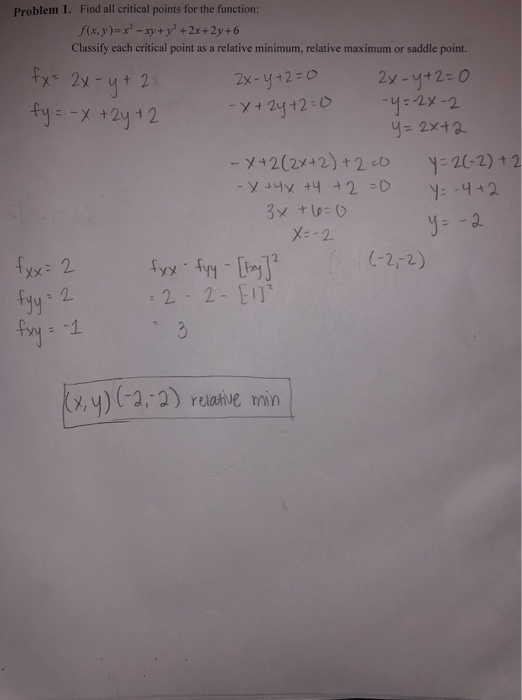 Problem 1. Find all critical points for the function:
f(x, y) = x² - xy + y² + 2x + 2y + 6
Classify each critical point as a relative minimum, relative maximum or saddle point.
fx = 2x - y + 2
fy = -x + 2y + 2
2x - y + 2 = 0
-x + 2y + 2 = 0
2x - y + 2 = 0
-y = -2x - 2
y = 2x + 2
-x + 2(2x+2) + 2 = 0
-x + 4x + 4 + 2 = 0
3x + 6 = 0
x = -2
y = 2(-2) + 2
y = -4 + 2
y = -2
(-2, -2)
fxx = 2
fyy = 2
fxy = -1
fxx · fyy - [fxy]²
= 2 · 2 - [-1]²
= 3
(x, y) (-2, -2) relative min